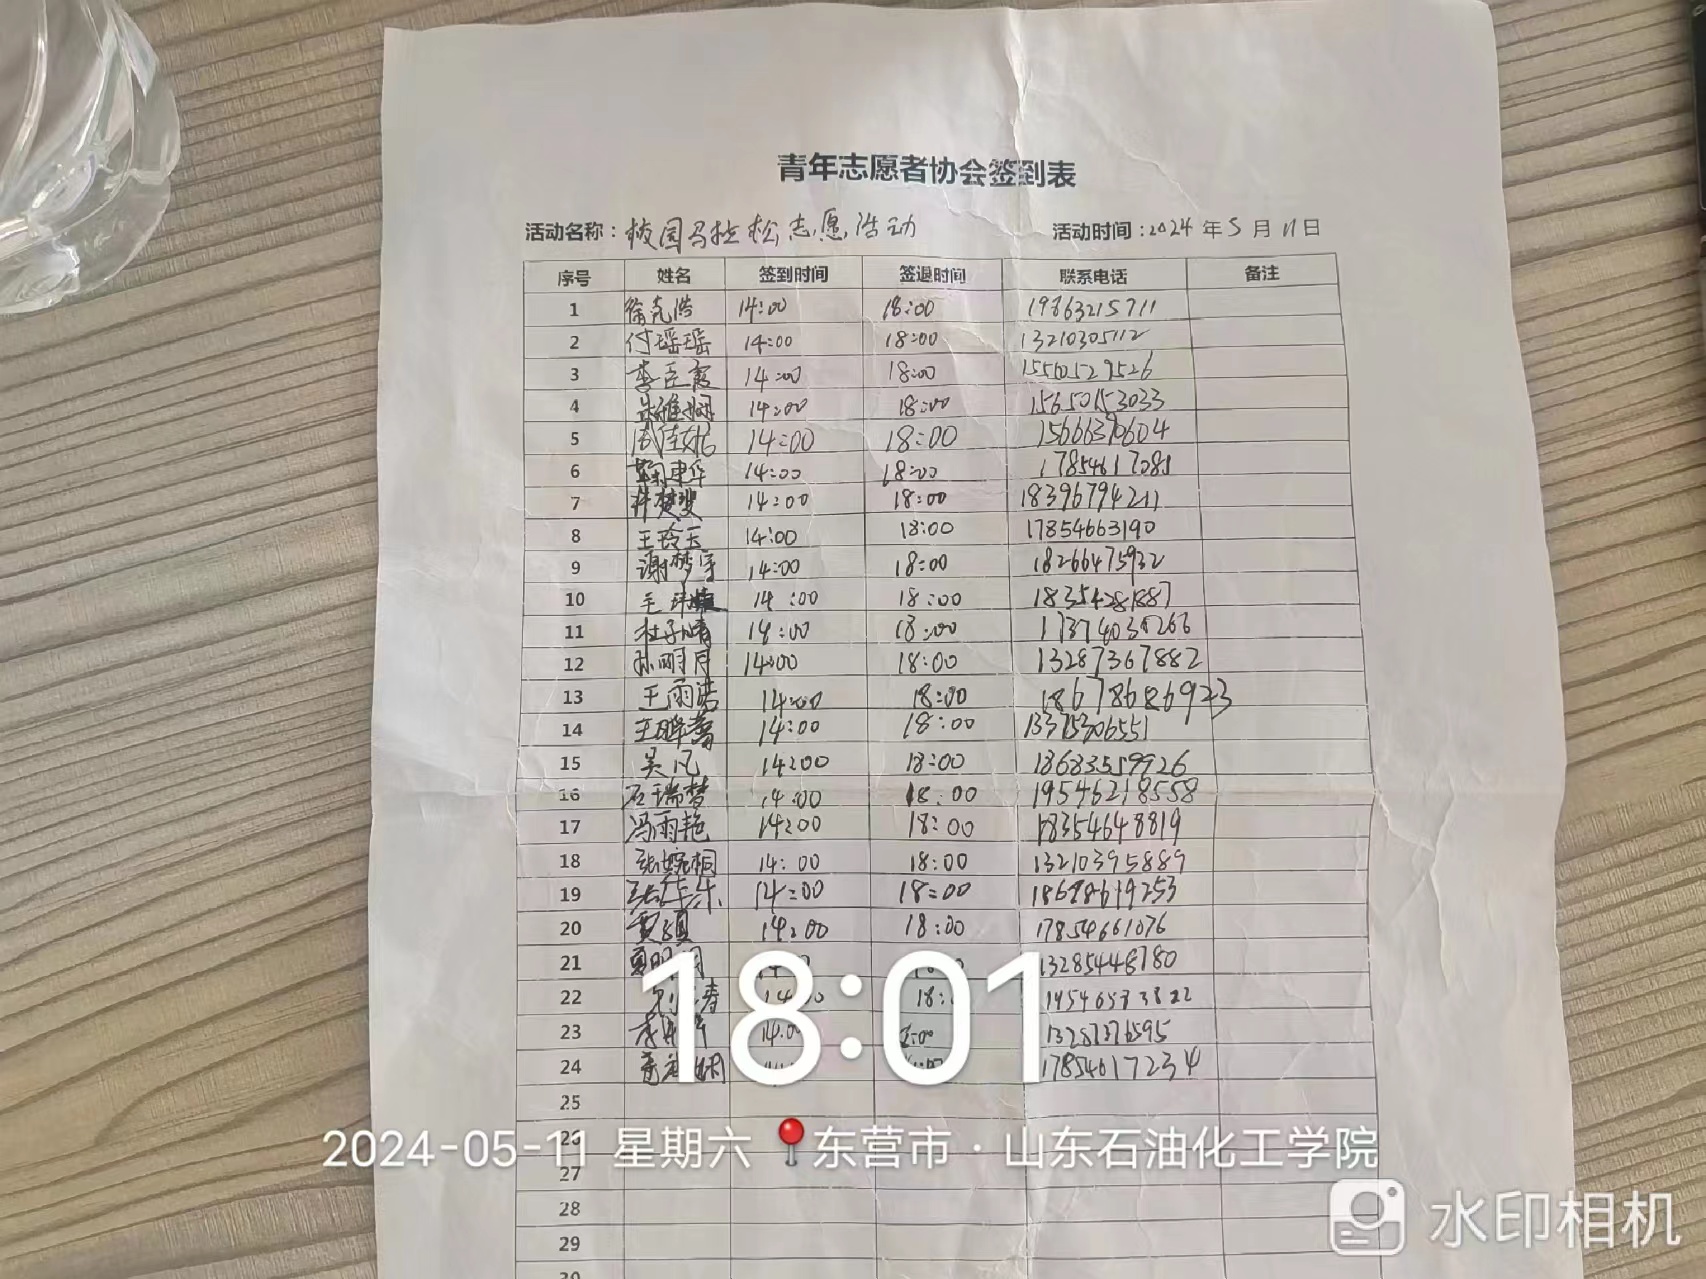 青年志愿者协会签到表
活动名称：校园马拉松志愿活动 活动时间：2024年5月11日
序号 姓名 签到时间 签退时间 联系电话 备注
1 徐克浩 14:00 18:00 19863215711
2 付瑶瑶 14:00 18:00 13210305112
3 14:00 18:00 15510529526
4 14:00 18:00 15650153033
5 14:00 18:00 15666370604
6 14:00 18:00 17854617081
7 许楚斐 14:00 18:00 18396794211
8 王玲玉 14:00 18:00 17854663190
9 谢梦宇 14:00 18:00 18266475932
10 14 :00 18:00
11 杜子晴 14:00 18:00
12 孙明月 14:00 18:00 13287367882
13 王雨洁 14:00 18:00 18678686923
14 14:00 18:00 13375306551
15 吴凡 14:00 18:00 18683559926
16 石瑞梦 14:00 18:00 19546218558
17 冯雨艳 14:00 18:00 18354648819
18 张婉桐 14:00 18:00 13210395889
19 14:00 18:00 18678619253
20 贾颖 14:00 18:00 17854661076
21 13285448780
22
23 13287376595
24 17854617234
25
26
27
28
29
30
18:01
2024-05-11 星期六 东营市·山东石油化工学院
水印相机